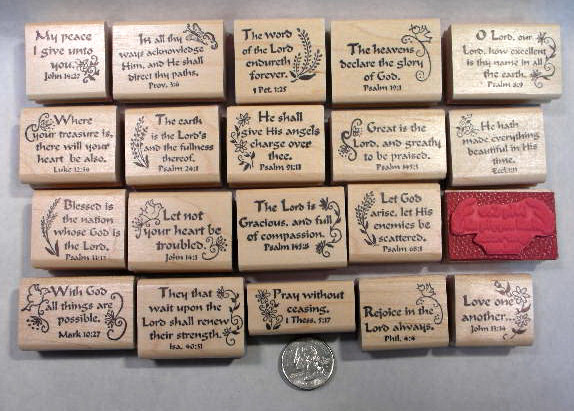 My peace
I give unto
you.
John 14:27
In all thy
ways acknowledge
Him, and He shall
direct thy paths.
Prov. 3:6
The word
of the Lord
endureth
forever.
1 Pet. 1:25
The heavens
declare the glory
of God.
Psalm 19:1
O Lord, our
Lord, how excellent
is thy name in all
the earth.
Psalm 8:9
Where
your treasure is,
there will your
heart be also.
Luke 12:34
The earth
is the Lord's
and the fullness
thereof.
Psalm 24:1
He shall
give His angels
charge over
thee.
Psalm 91:11
Great is the
Lord, and greatly
to be praised.
Psalm 145:3
He hath
made everything
beautiful in His
time.
Eccl. 3:11
Blessed is
the nation
whose God is
the Lord.
Psalm 33:12
Let not
your heart be
troubled.
John 14:1
The Lord is
Gracious, and full
of compassion.
Psalm 145:8
Let God
arise, let His
enemies be
scattered.
Psalm 68:1
With God
all things are
possible.
Mark 10:27
They that
wait upon the
Lord shall renew
their strength.
Isa. 40:31
Pray without
ceasing.
1 Thess. 5:17
Rejoice in the
Lord always.
Phil. 4:4
Love one
another...
John 13:34